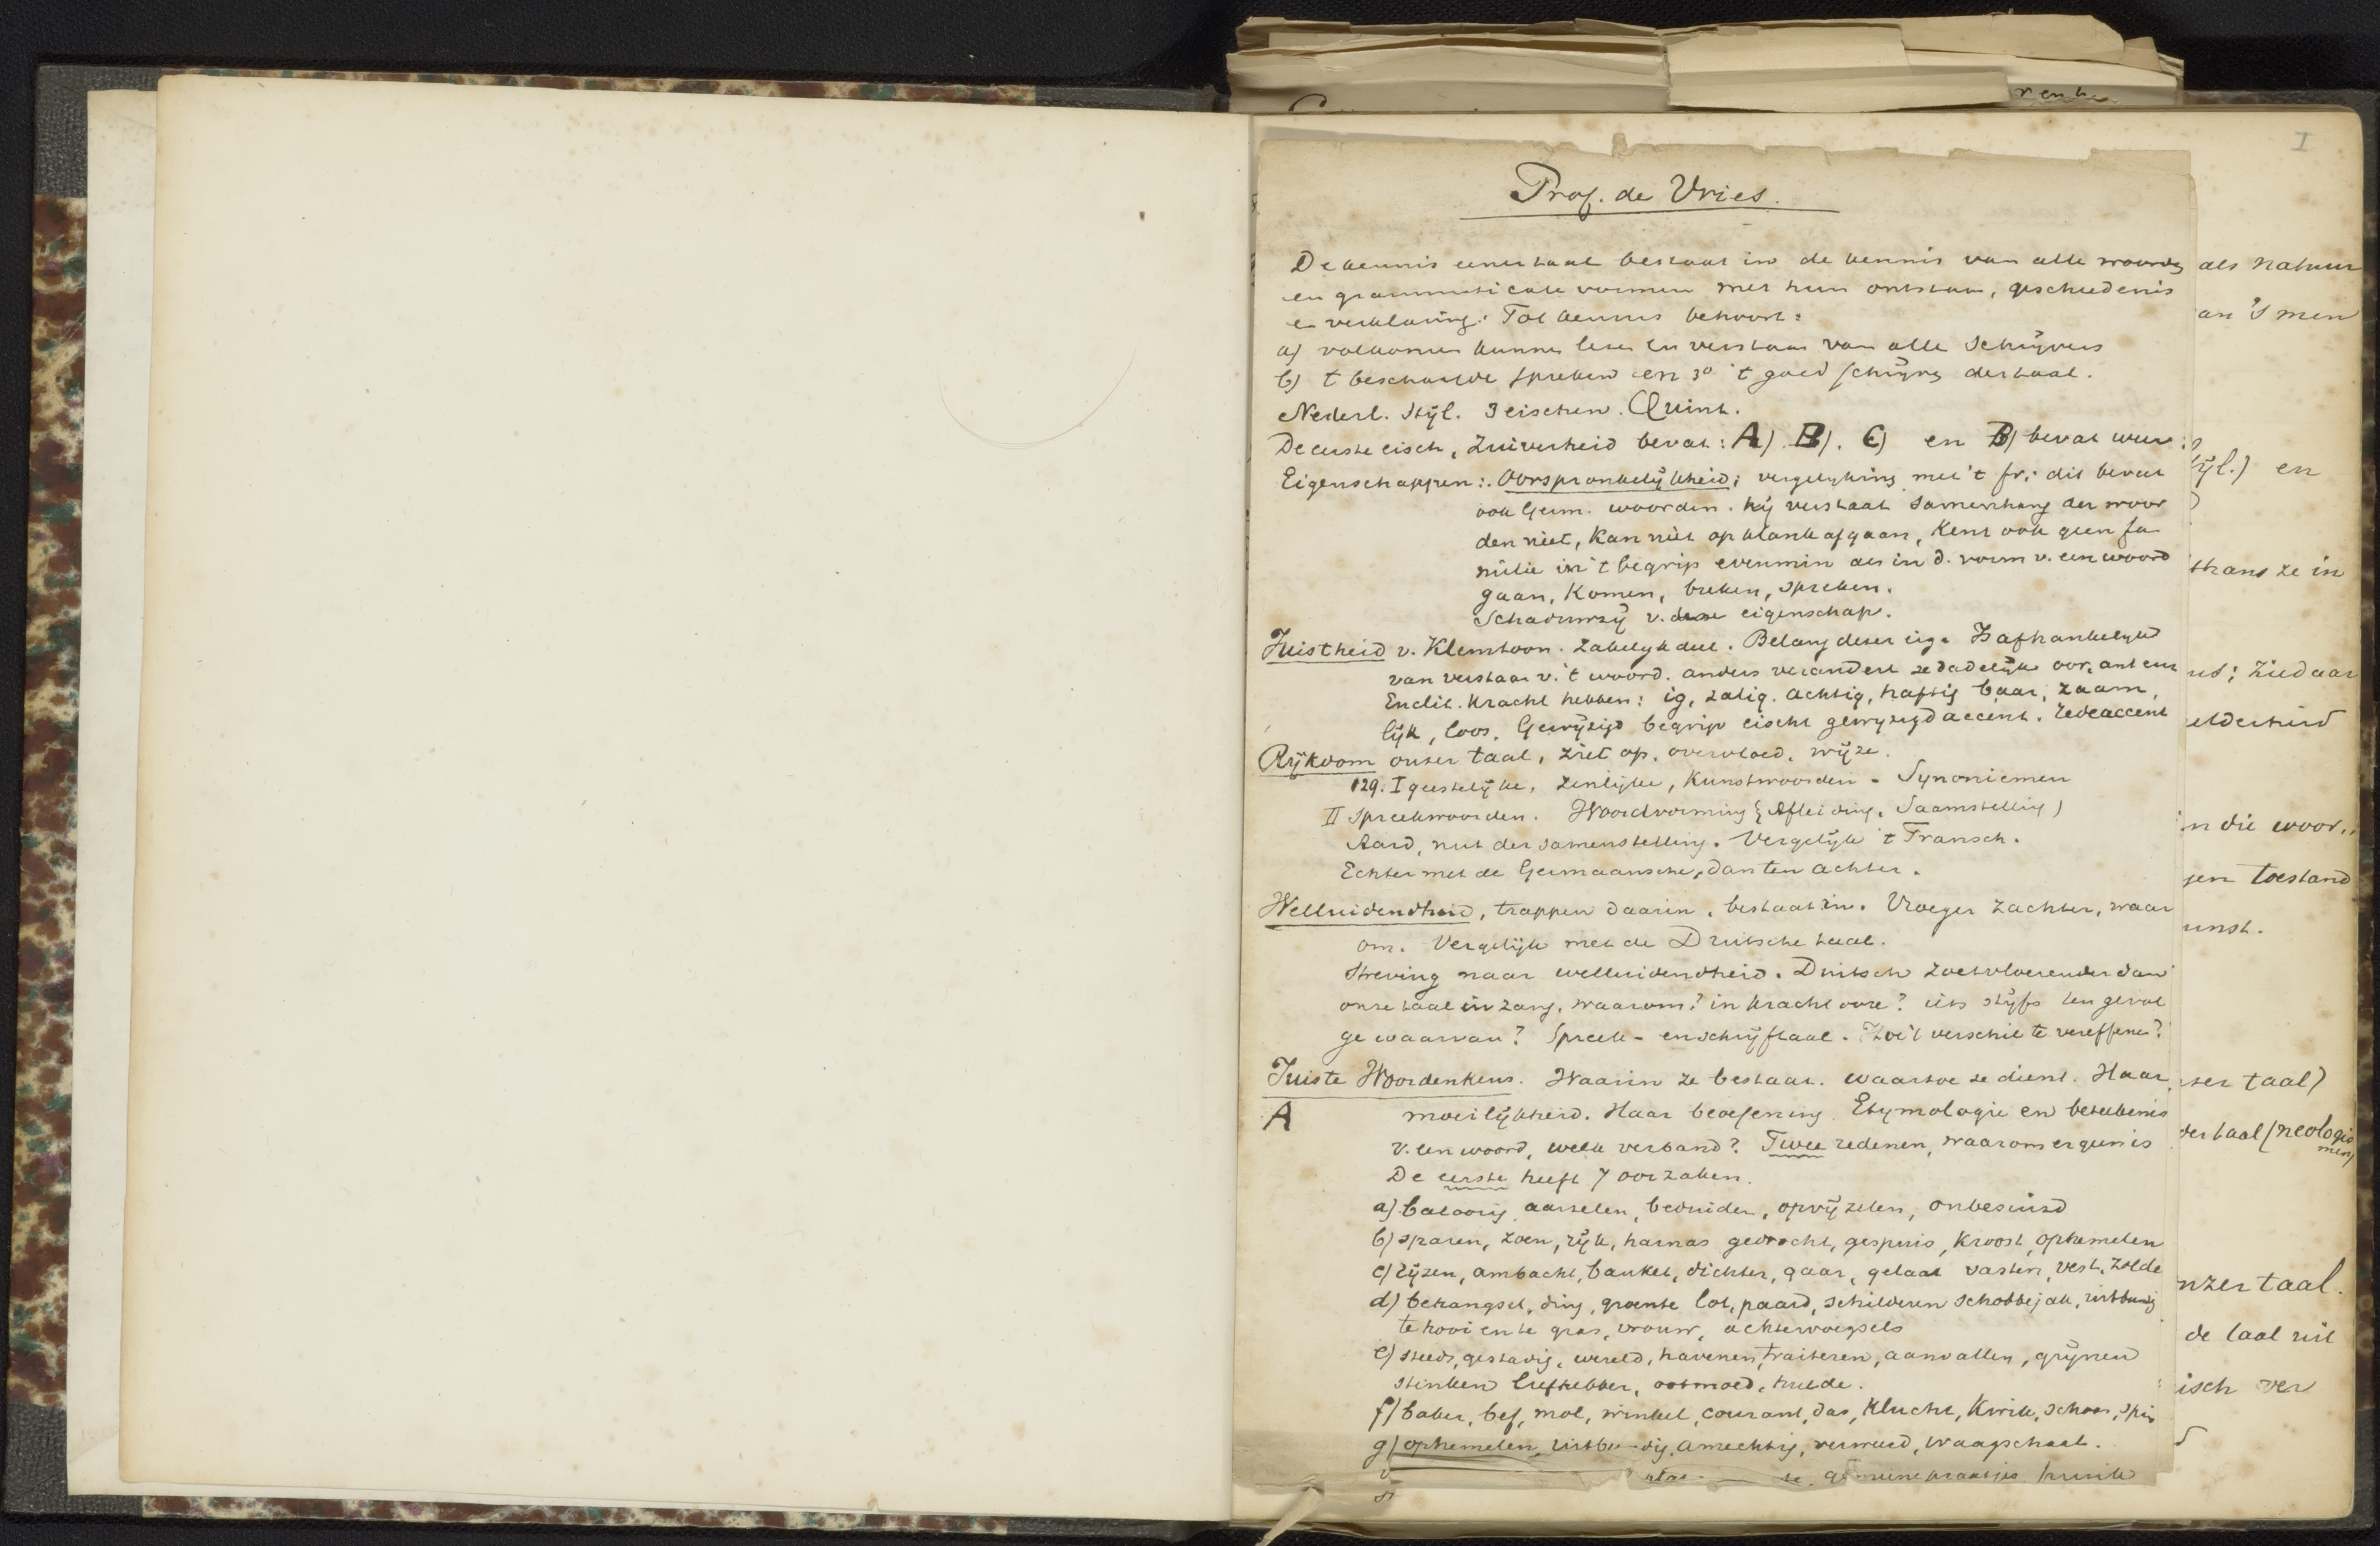 I
Prof. de Vries.
De kennis eener taal bestaat in de kennis van alle woorden
en grammaticale vormen met hun ontstaan, geschiedenis
en verklaring. Tot kennis behoort:
a) volkomen kunnen lezen en verstaan van alle Schrijvers
b) t beschaafde spreken en 3o 't goed schrijven der taal.
Nederl. Stijl. 3 eischen. Quint.
De eerste eisch, Zuiverheid bevat: A). B). C) en B) bevat weer:
Eigenschappen: Oorspronkelijkheid; vergelyking met 't fr; dit bevat
ook Germ. woorden. Hij verstaat samenhang der woor
den niet, kan niet op klank afgaan, Kent ook geen fa
milie in 't begrip evenmin als in d. vorm v. een woord
gaan, Komen, breken, spreken.
Schaduwzij v. deze eigenschap.
Juistheid v. Klemtoon. Zakelyk deel. Belang dezer eig. Is afhankelykh
van verstaan v. 't woord. anders verandert ze dadelijk
Enclit. kracht hebben: ig, zalig. achtig, haftig baar, zaam,
lijk, loos. Gewijzigd begrip eischt gewyzigd accent. Redeaccent
Rijkdom onzer taal, ziet op, overvloed, wijze.
129. I geestelijke, zinlijke, Kunstwoorden - Synoniemen
II Spreekwoorden. Woordvorming (Afleiding, Saamstelling)
Aard, nut der samenstelling. Vergelijk 't Fransch.
Echter met de Germaansche, dan ten achter.
Welluidendheid, trappen daarin, bestaat in. Vroeger zachter, waar
om. Vergelijk met de Duitsche taal.
Streving naar welluidendheid. Duitsch zoetvloeiender dan
onze taal in zang, waarom? in kracht voor? iets stijfs ten gevol
ge waarvan? Spreek- en schrijftaal. Hoe 't verschil te vereffenen?
Juiste Woordenkens. Waarin ze bestaat. waartoe ze dient. Haar
A moeilijkheid. Haar beoefening. Etymologie en beteekenis
v. een woord, welk verband? Twee redenen, waarom er geen is
De eerste heeft 7 oorzaken.
a) baloorig, aarzelen, beduiden, opvijzelen, onbesuisd
b) sparen, zoen, rijk, harnas gedrocht, gespuis, kroost, ophemelen
c) lijzen, ambacht, banket, dichter, gaar, gelaat vasten, vest, zolde
d) behangsel, ding, groente lot, paard, schilderen schobbejak, uitbundig
te hooi en te gras, vrouw, achtervoegsels
e) steeds, gestadig, wereld, havenen, traiteren, aanvallen, grijnen
stinken liefhebber, ootmoed, hulde.
f) baker, bef, mol, winkel, courant, das, Klucht, Kwik, schoor, spin
g) ophemelen, uitbundig, amechtig, verweerd, waagschaal.
gemeene praatjes
als natuur
an 's men
ijl.) en
thans ze in
nd; Ziedaar
elderheid
in die woor„
gen toestand
unst.
zer taal)
der taal (neologis
men)
nzer taal.
de taal uit
isch ver